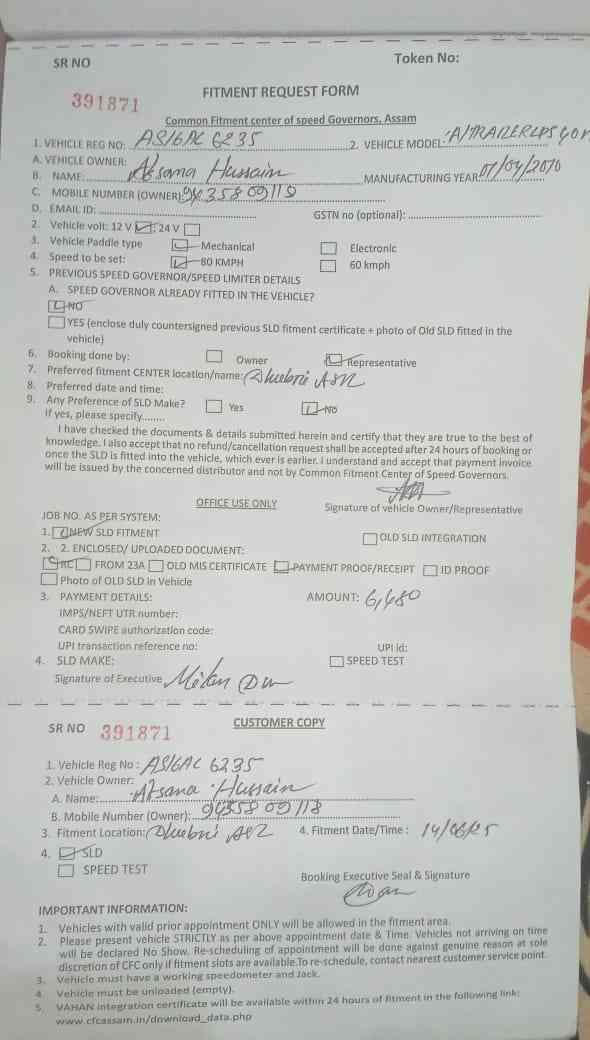 SR NO Token No:
391871 FITMENT REQUEST FORM
Common Fitment center of speed Governors, Assam
1. VEHICLE REG NO: AS16AC 6235 2. VEHICLE MODEL:
A. VEHICLE OWNER:
B. NAME: Afsana Hussain MANUFACTURING YEAR 07/04/2010
C. MOBILE NUMBER (OWNER)
D. EMAIL ID: GSTN no (optional):
2. Vehicle volt: 12 V 24 V
3. Vehicle Paddle type Mechanical Electronic
4. Speed to be set: 80 KMPH 60 kmph
5. PREVIOUS SPEED GOVERNOR/SPEED LIMITER DETAILS
A. SPEED GOVERNOR ALREADY FITTED IN THE VEHICLE?
NO
YES (enclose duly countersigned previous SLD fitment certificate + photo of Old SLD fitted in the
vehicle)
6. Booking done by: Owner Representative
7. Preferred fitment CENTER location/name:
8. Preferred date and time:
9. Any Preference of SLD Make? Yes No
If yes, please specify........
I have checked the documents & details submitted herein and certify that they are true to the best of
knowledge. I also accept that no refund/cancellation request shall be accepted after 24 hours of booking or
once the SLD is fitted into the vehicle, which ever is earlier. I understand and accept that payment invoice
will be issued by the concerned distributor and not by Common Fitment Center of Speed Governors.
OFFICE USE ONLY Signature of vehicle Owner/Representative
JOB NO. AS PER SYSTEM:
1. NEW SLD FITMENT OLD SLD INTEGRATION
2. 2. ENCLOSED/ UPLOADED DOCUMENT:
RC FROM 23A OLD MIS CERTIFICATE PAYMENT PROOF/RECEIPT ID PROOF
Photo of OLD SLD in Vehicle
3. PAYMENT DETAILS: AMOUNT: 6,480
IMPS/NEFT UTR number:
CARD SWIPE authorization code:
UPI transaction reference no: UPI id:
4. SLD MAKE: SPEED TEST
Signature of Executive
SR NO 391871 CUSTOMER COPY
1. Vehicle Reg No : AS16AC 6235
2. Vehicle Owner:
A. Name: Afsana Hussain
B. Mobile Number (Owner): 94358 09118
3. Fitment Location: 4. Fitment Date/Time : 14/08/25
4. SLD
SPEED TEST
Booking Executive Seal & Signature
IMPORTANT INFORMATION:
1. Vehicles with valid prior appointment ONLY will be allowed in the fitment area.
2. Please present vehicle STRICTLY as per above appointment date & Time. Vehicles not arriving on time
will be declared No Show. Re-scheduling of appointment will be done against genuine reason at sole
discretion of CFC only if fitment slots are available.To re-schedule, contact nearest customer service point.
3. Vehicle must have a working speedometer and Jack.
4. Vehicle must be unloaded (empty).
5. VAHAN integration certificate will be available within 24 hours of fitment in the following link:
www.cfcassam.in/download_data.php